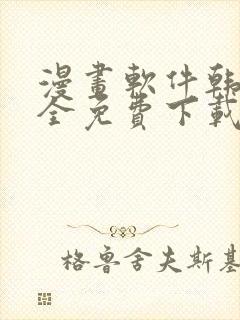 漫畫軟件韩
全免費下載
格鲁舍夫斯基